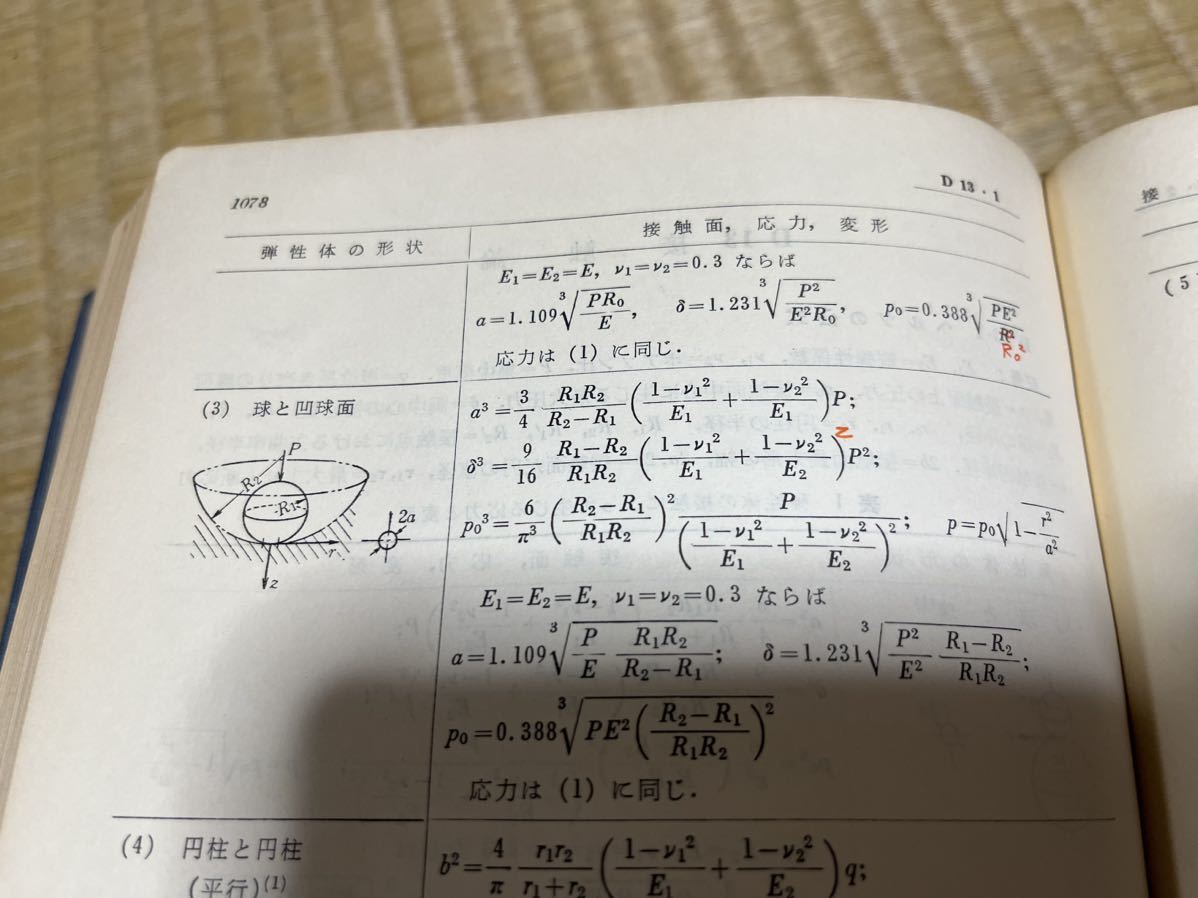 1078
D 13・1
弾性体の形状
接触面, 応力, 変形
E₁=E₂=E, ν₁=ν₂=0.3 ならば
a=1.109∛(PR₀/E), δ=1.231∛(P²/(E²R₀)), p₀=0.388∛(PE²/R²)
R₀²
応力は (1) に同じ.
(3) 球と凹球面
a³=3/4 R₁R₂/(R₂−R₁) ((1−ν₁²)/E₁+(1−ν₂²)/E₁)P;
δ³=9/16 (R₁−R₂)/(R₁R₂) ((1−ν₁²)/E₁+(1−ν₂²)/E₂)²P²;
p₀³=6/π³ ((R₂−R₁)/(R₁R₂))² P/((1−ν₁²)/E₁+(1−ν₂²)/E₂)²; p=p₀√(1−r²/a²)
P
R₂
R₁
2a
r
z
E₁=E₂=E, ν₁=ν₂=0.3 ならば
a=1.109∛(P/E R₁R₂/(R₂−R₁)); δ=1.231∛(P²/E² (R₁−R₂)/(R₁R₂));
p₀=0.388∛(PE²((R₂−R₁)/(R₁R₂))²)
応力は (1) に同じ.
(4) 円柱と円柱
(平行)⁽¹⁾
b²=4/π r₁r₂/(r₁+r₂) ((1−ν₁²)/E₁+(1−ν₂²)/E₂)q;
接
(5